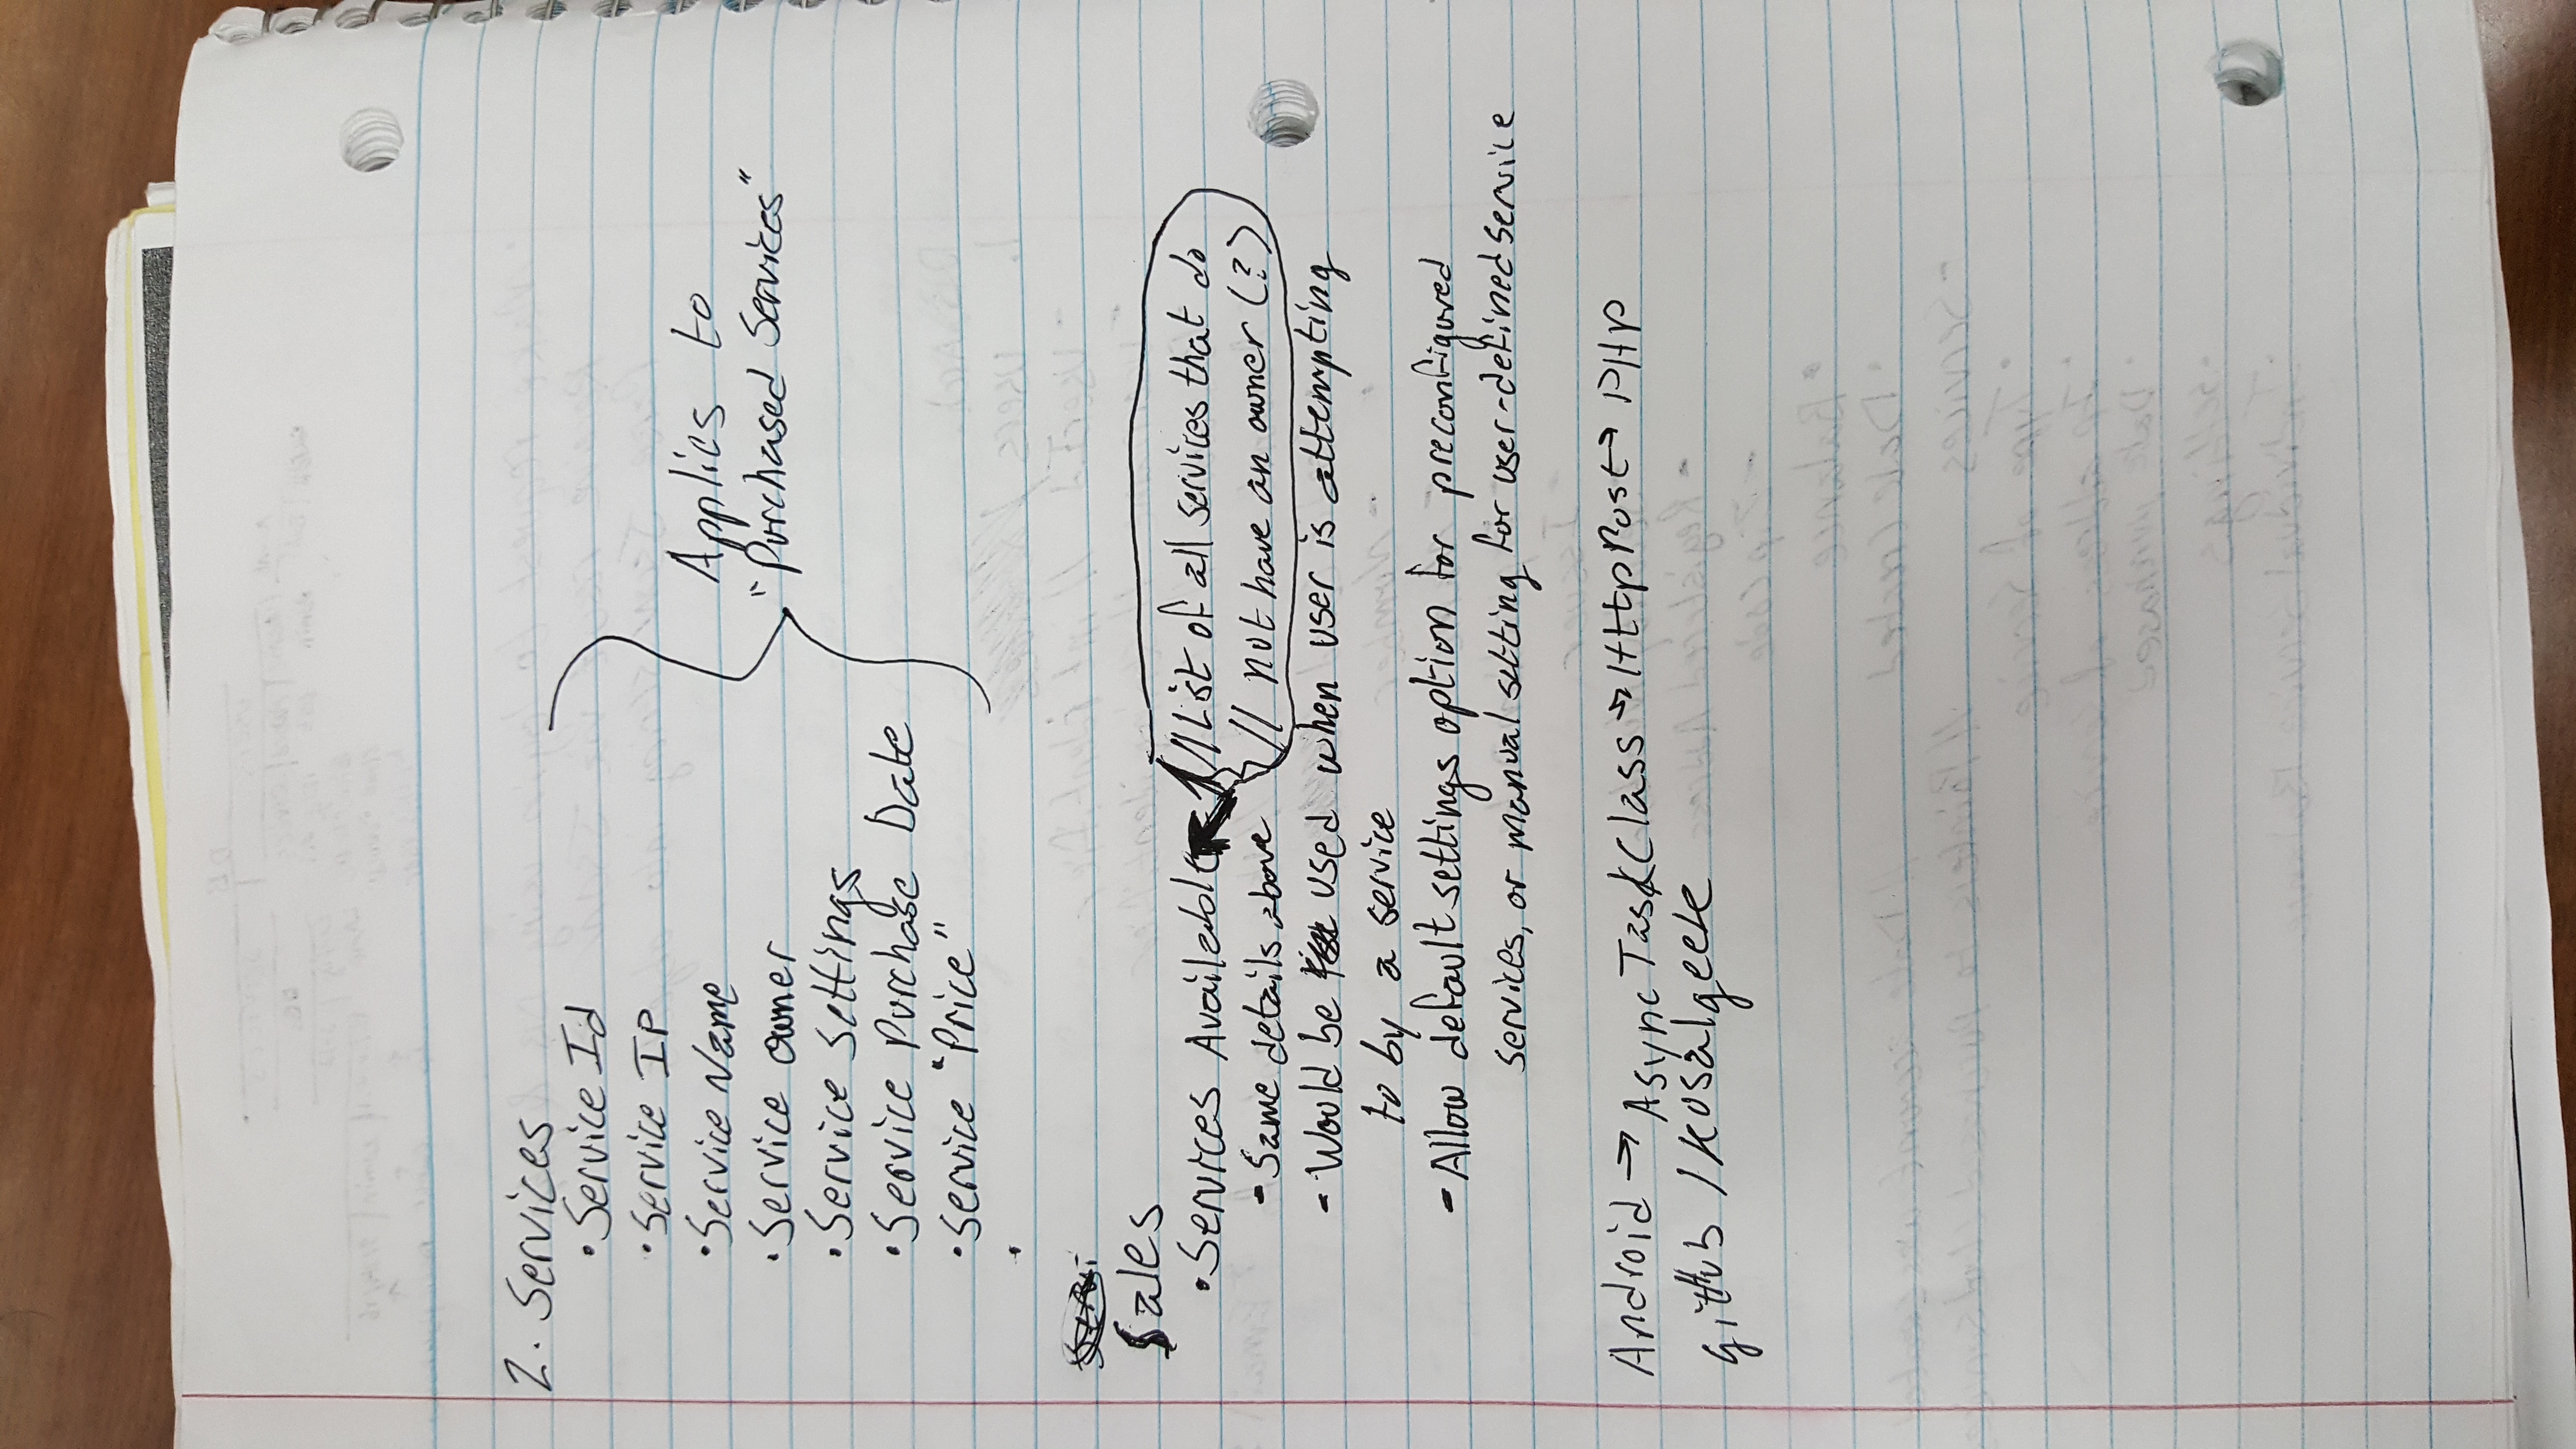 2. Services
• Service Id
• Service IP
• Service Name
• Service owner
• Service Settings
• Service Purchase Date
• Service "Price"
•
Applies to
"Purchased Services"
Sales
• Services Available
//List of all services that do
// not have an owner (?)
- Same details above
- Would be used when user is attempting
to by a service
- Allow default settings option for preconfigured
services, or manual setting for user-defined service
Android → AsyncTaskClass → HttpPost → PHP
gitHub /kosalgeek